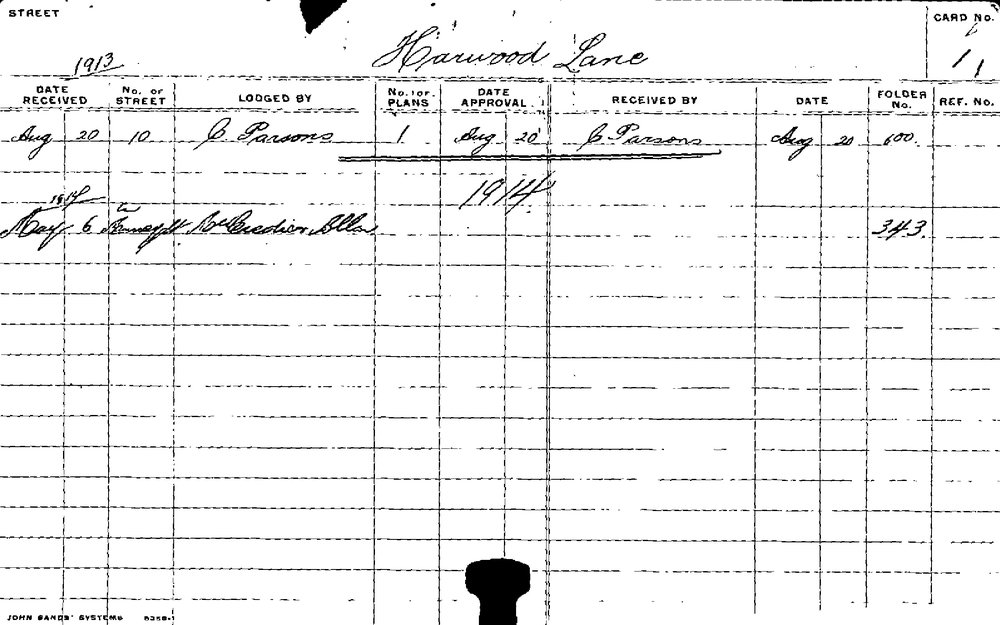 STREET
CARD No.
1913
Harwood Lane
1 1
DATE RECEIVED No. OF STREET LODGED BY No. OF PLANS DATE APPROVAL. RECEIVED BY DATE FOLDER No. REF. No.
Aug 20 10 C Parsons 1 Aug 20 C Parsons Aug 20 600.
1914 1914
May 6 343.
JOHN SANDS' SYSTEMS 5358-1